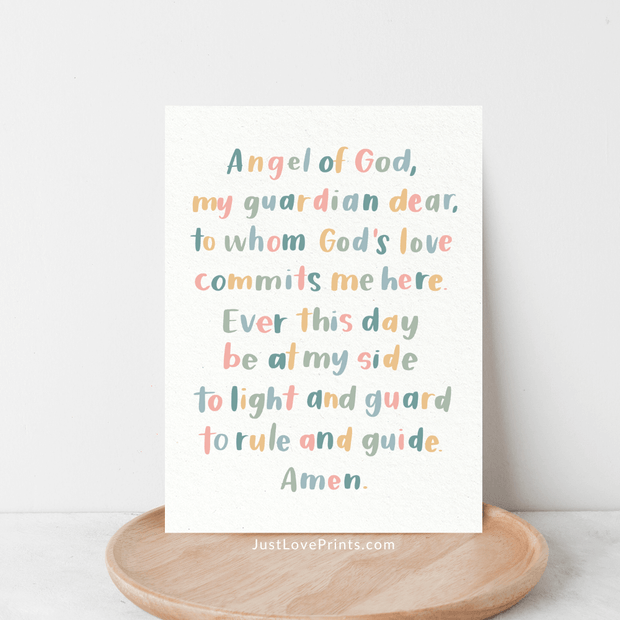 Angel of God,
my guardian dear,
to whom God's love
commits me here.
Ever this day
be at my side
to light and guard
to rule and guide.
Amen.
JustLovePrints.com